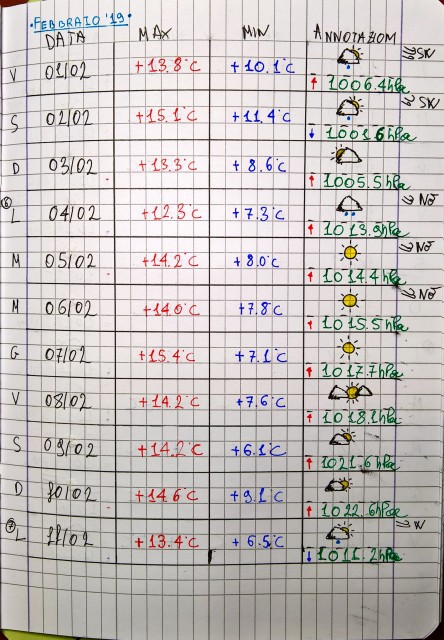 • FEBBRAIO '19 •
DATA MAX MIN ANNOTAZIONI
V 01/02 +13.8°C +10.1°C SW
↑ 1006.4hPa
S 02/02 +15.1°C +11.4°C SW
↓ 1001.6hPa
D 03/02 +13.3°C +8.6°C
↑ 1005.5hPa
⑥ L 04/02 +12.3°C +7.3°C NE
↑ 1013.9hPa
M 05/02 +14.2°C +8.0°C NE
↑ 1014.4hPa
M 06/02 +14.0°C +7.8°C NE
↑ 1015.5hPa
G 07/02 +15.4°C +7.1°C
↑ 1017.7hPa
V 08/02 +14.2°C +7.6°C
↑ 1018.1hPa
S 09/02 +14.2°C +6.1°C
↑ 1021.6hPa
D 10/02 +14.6°C +9.1°C
↑ 1022.6hPa
⑦ L 11/02 +13.4°C +6.5°C W
↓ 1011.2hPa